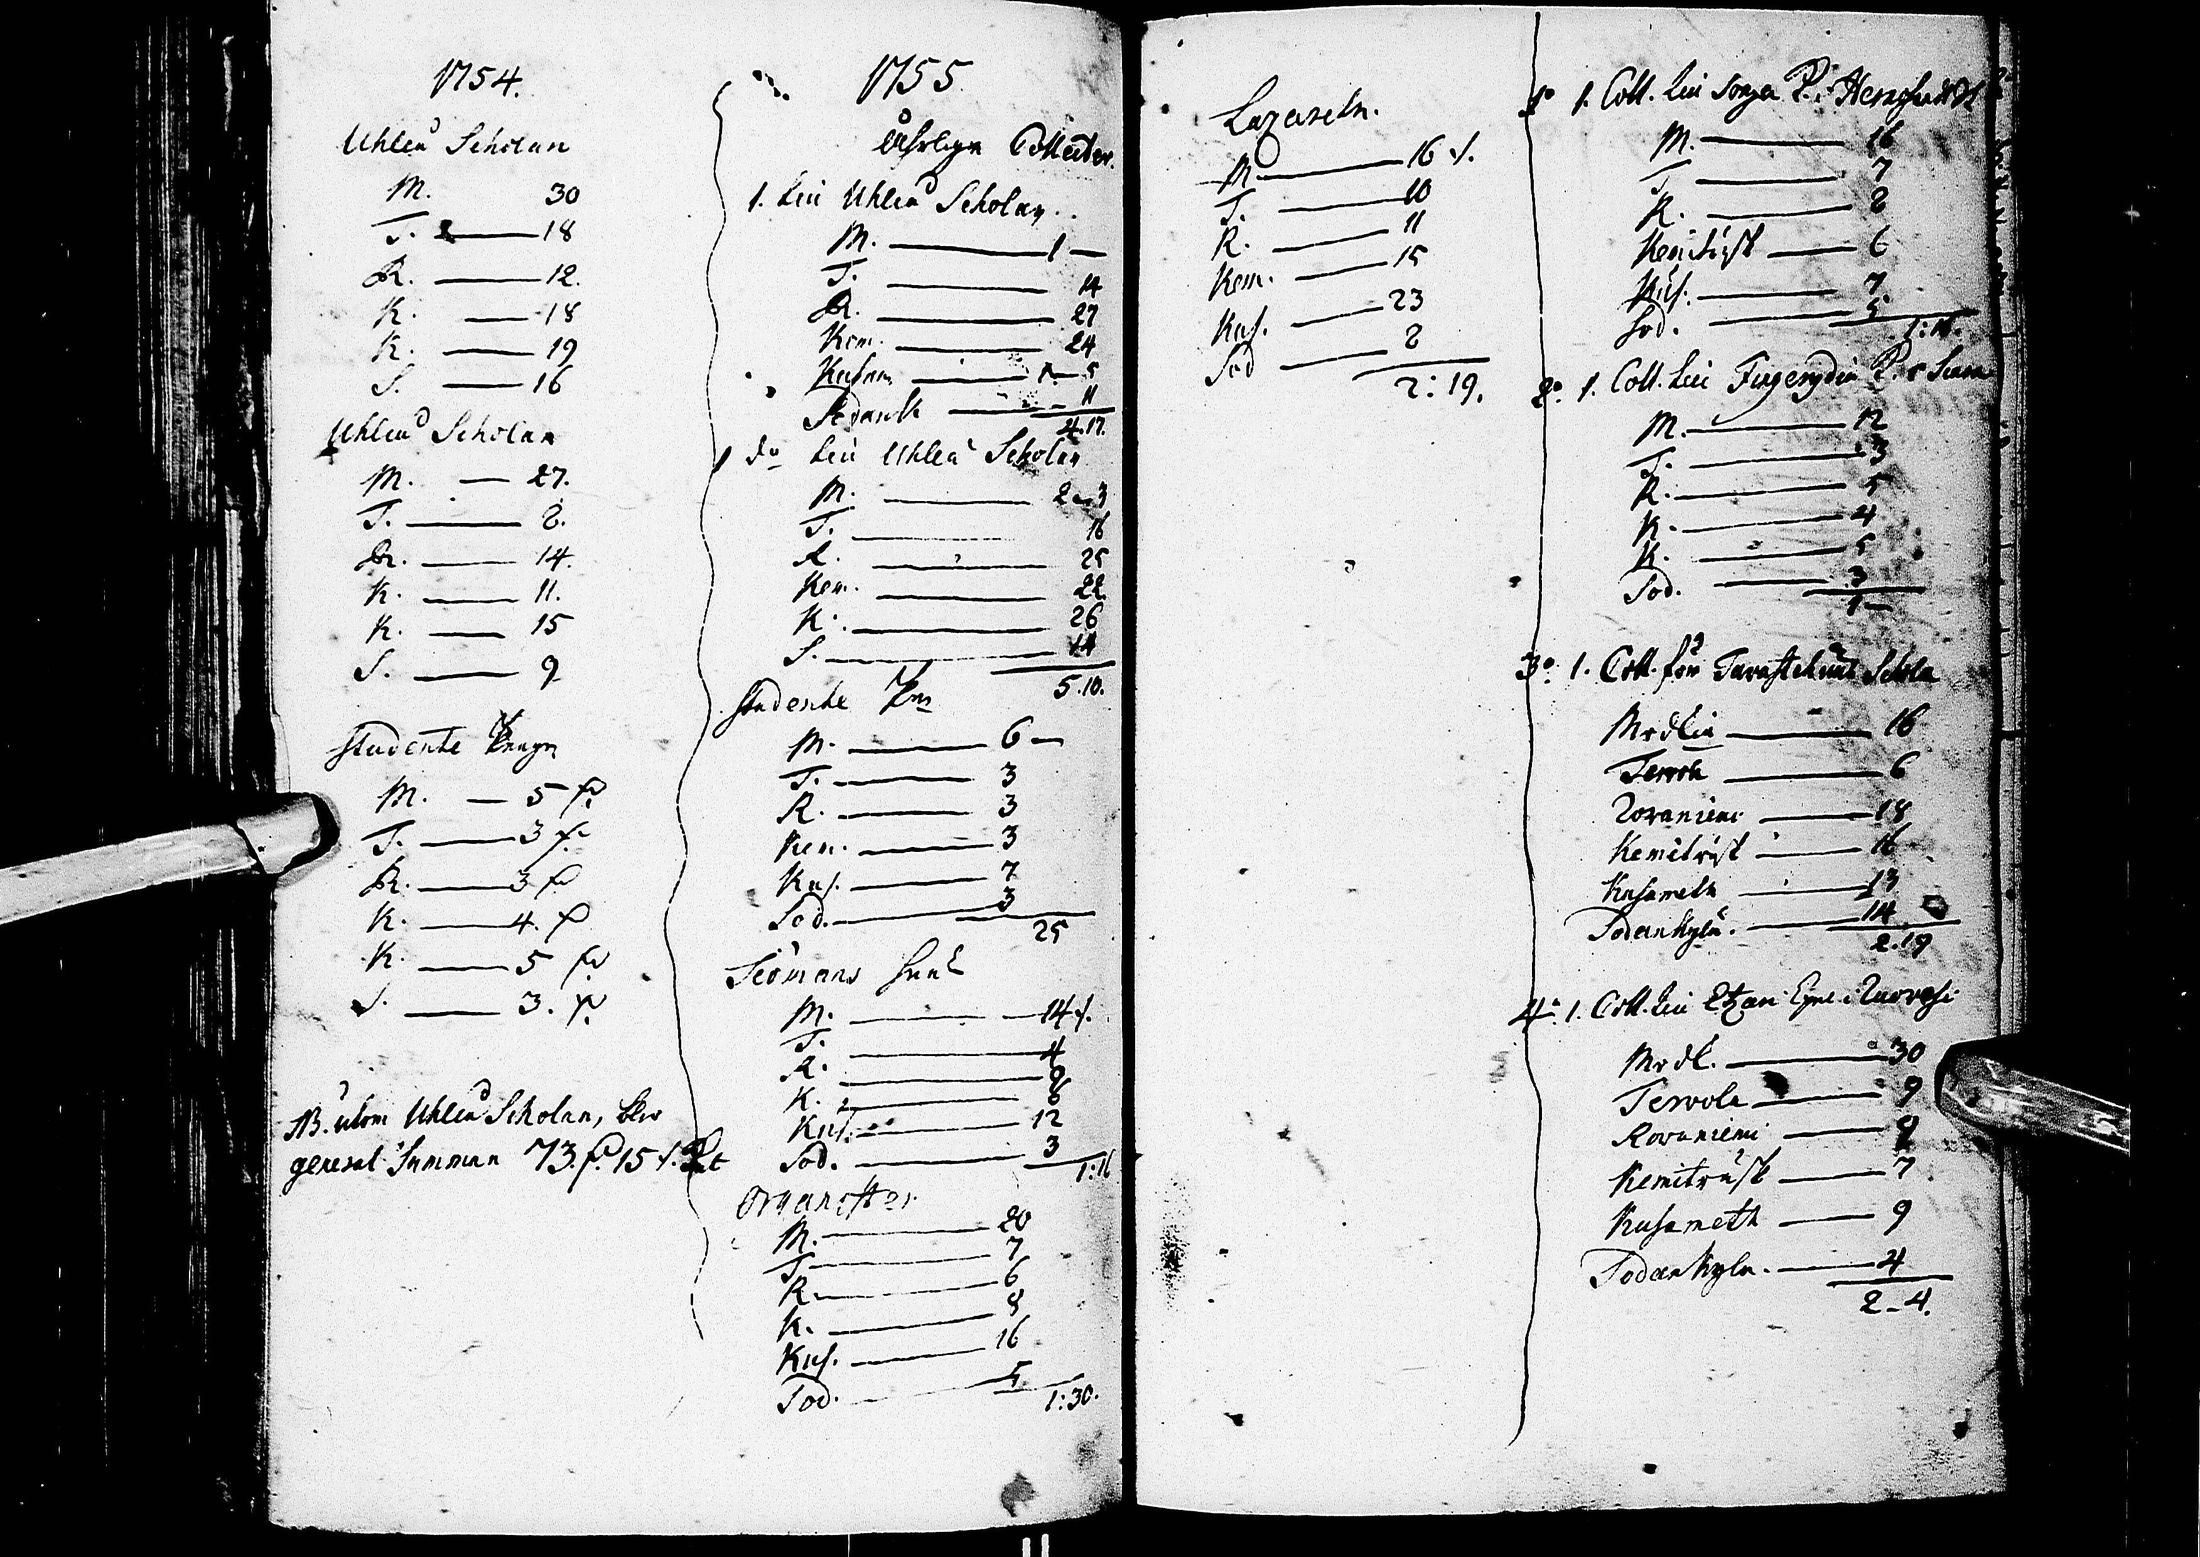 1754.
Uhleå Scholan
M. 30
T. 18
R. 12.
K. 18
K. 19
S. 16
Uhleå Scholan
M. 27.
T. 8.
R. 14.
K. 11.
K. 15
S. 9
Studente
M. 5
T. 3
R. 3
K. 4.
K. 5
S. 3.
NB. utom Uhleå Scholan, blev
general Summan 73. 15
1755
åhrlige Collecter.
1. till Uhleå Scholan.
M. 1 —
T. 14
R. 27
Kem. 24
Kusam 1 — 5
Sodank 11
4.17.
1 do till Uhleå Scholan
M. 2 — 3
T. 16
R. 25
Kem. 22
K. 26
S. 14
5.10.
Studente
M. 6 —
T. 3
R. 3
Kem. 3
Kus. 7
Sod. 3
25
Siömans huus
M. 14
T. 4
R. 8
K. 6
Kus. 12
Sod. 3
1:16
Organister
M. 20
T. 7
R. 6
K. 8
Kus. 16
Sod. 5
1:30.
Lazareth.
M 16
T. 10
R. 11
Kem. 15
Kus. 23
Sod 8
2:19.
1o 1. Coll. till
M. 16
T. 7
R. 8
Kemiträsk 6
Kus. 7
Sod. 5
2o 1. Coll. till
M. 12
T. 3
R. 5
K. 4
K. 5
Sod. 3
1 —
3o. 1. Coll. för Tavastehuus Schola
Mrdkiä 16
Tervola 6
Rovaniemi 18
Kemiträsk 16
Kusameth 13
Sodankylä. 14
2.19
4o. 1. Coll. till
Mrdk. 30
Tervola 9
Rovaniemi 9
Kemiträsk 7
Kusameth 9
Sodankyla. 4
2 — 4.